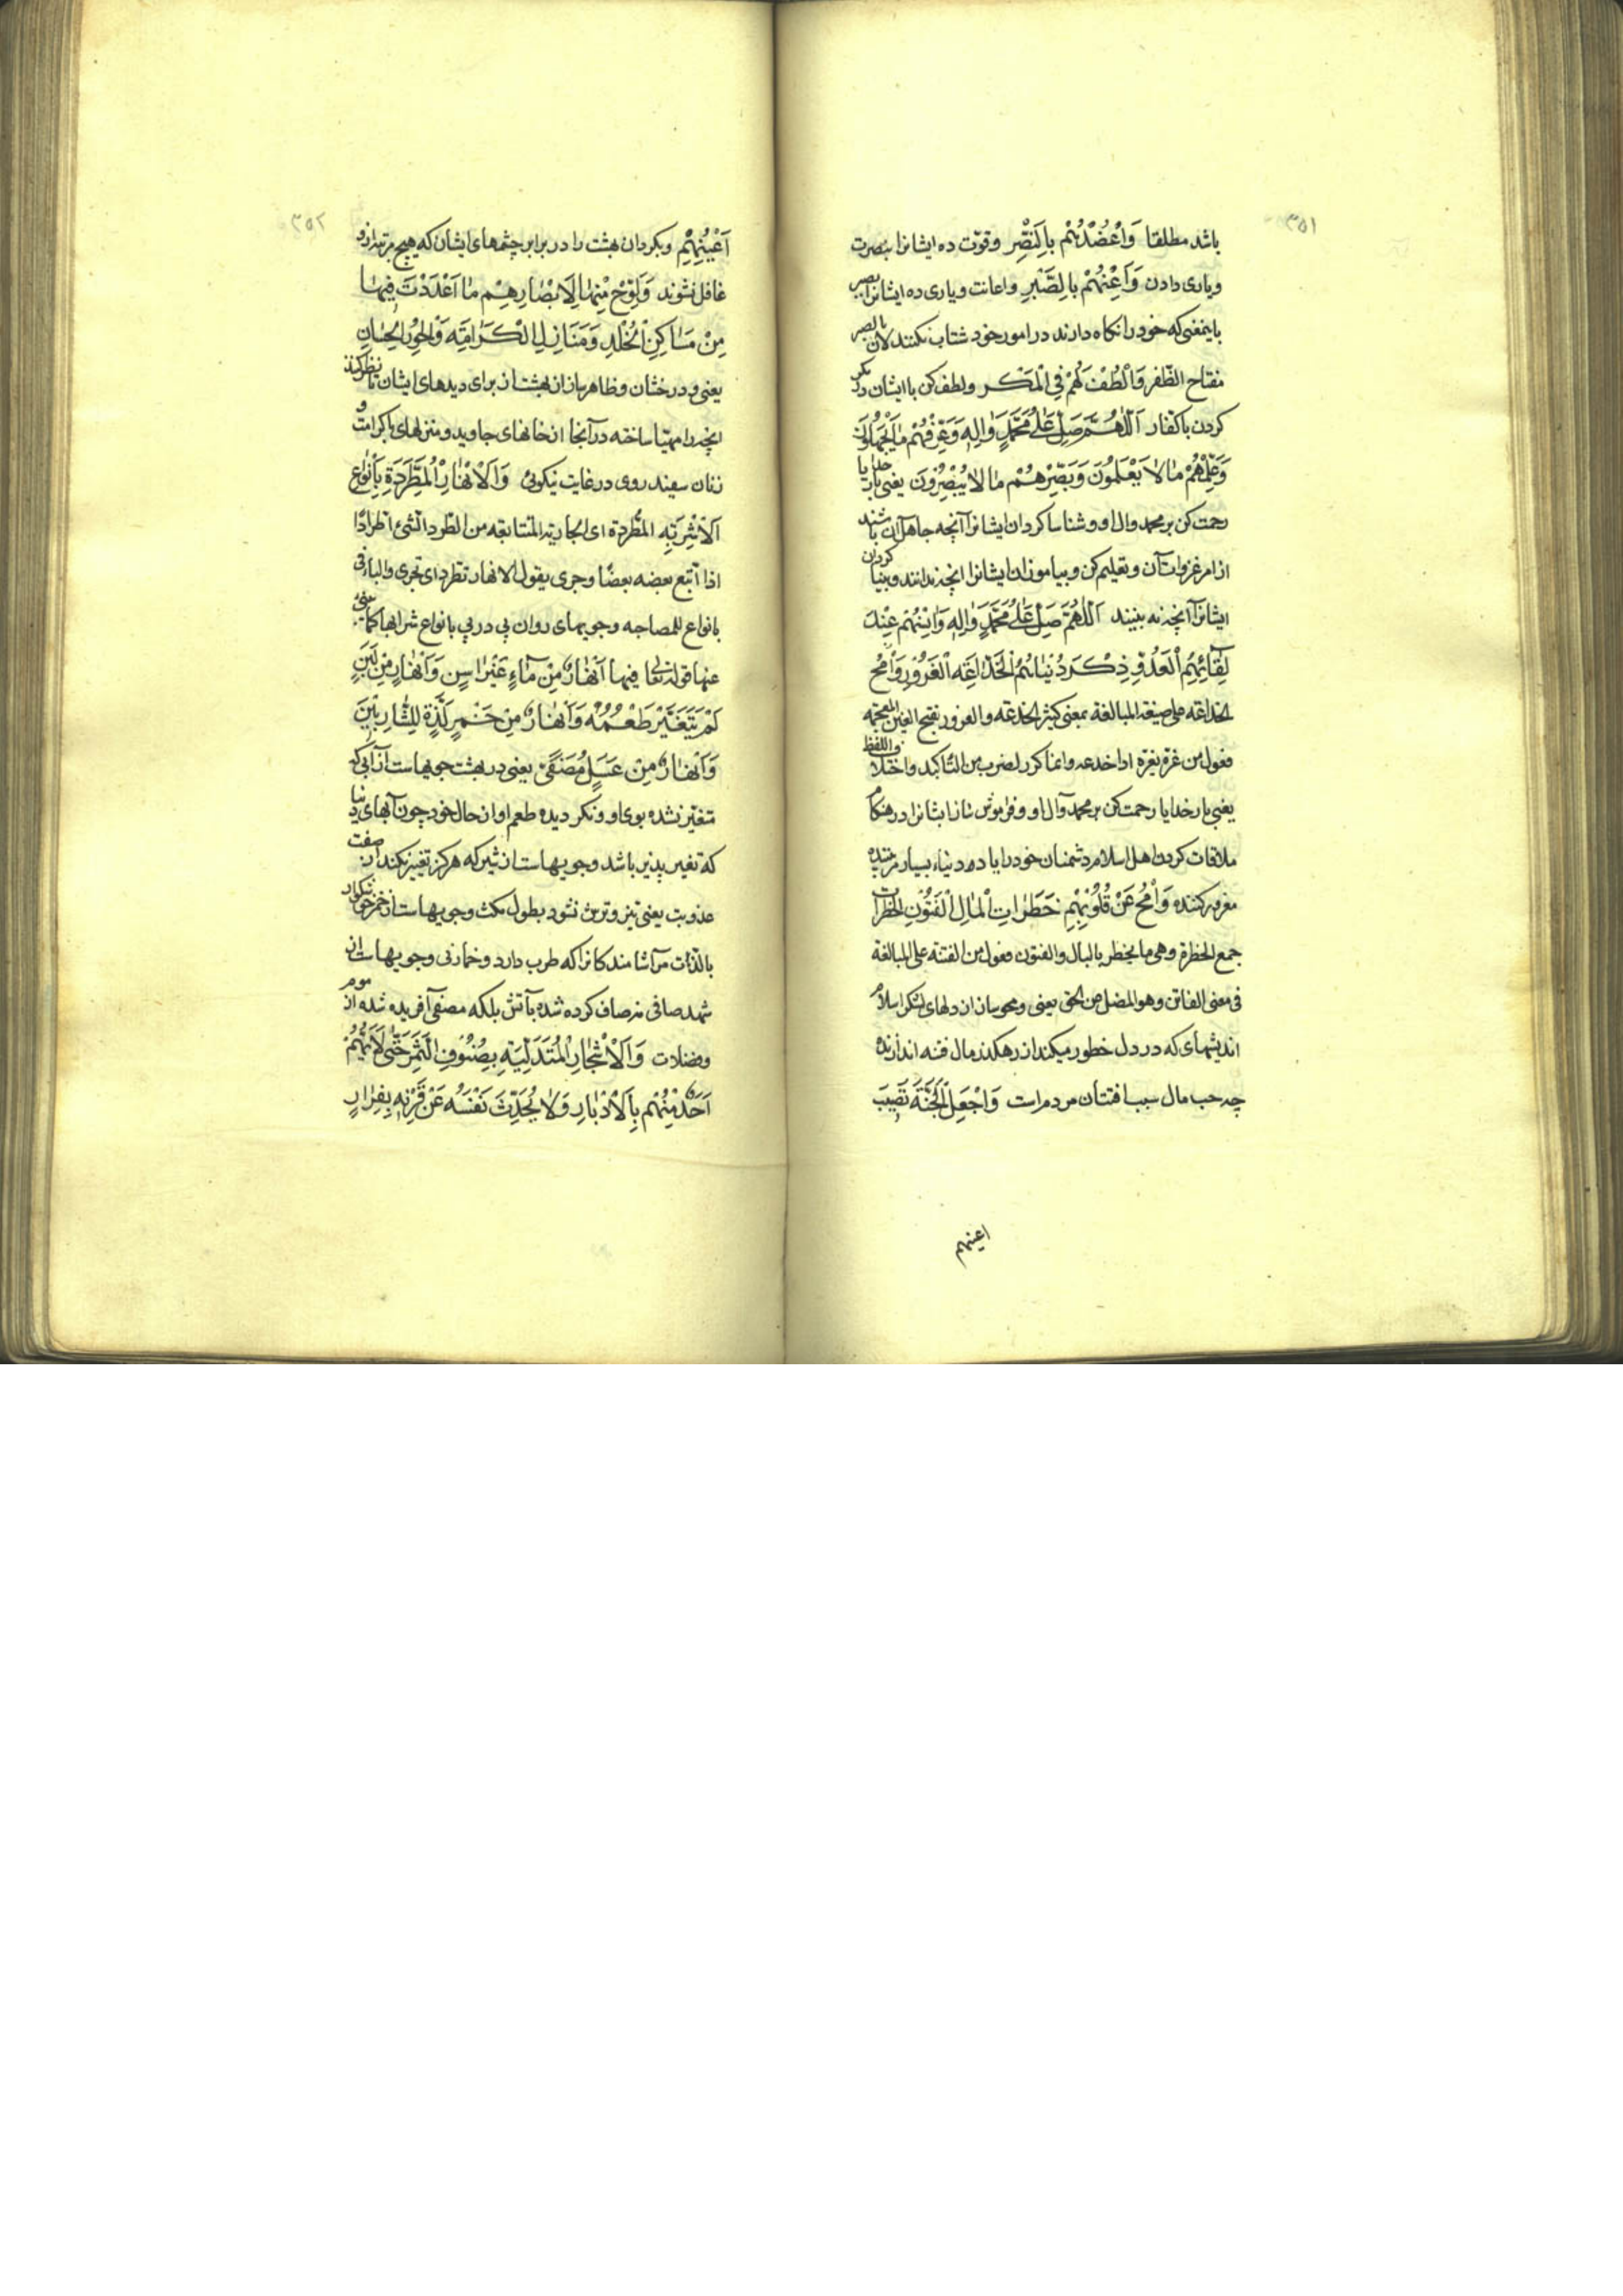 ٣٥١
باشد مطلقا وَاعْضُدْهُمْ بِالنَّصْرِ وقوّت ده ایشانرا بنصرت
ویاری دادن وَاَعِنْهُمْ بِالصَّبْرِ واعانت ویاری ده ایشانرا بصبر
باینمعنی که خود را نکاه دارند در امور خود شتاب نکنند لان الصبر
مفتاح الظّفر وَالْطُفْ لَهُمْ فِی الْمَكْرِ ولطف کن با ایشان در مکر
کردن با کفار اَللّٰهُمَّ صَلِّ عَلٰی مُحَمَّدٍ وَاٰلِهِ وَعَرِّفْهُمْ مٰا یَجْهَلُونَ
وَعَلِّمْهُمْ مٰا لاٰ یَعْلَمُونَ وَبَصِّرْهُمْ مٰا لاٰ یُبْصِرُونَ یعنی بار خدایا
رحمت کن بر محمد وال او و شناسا کردان ایشانرا آنچه جاهل آن باشند
از امر غزوات آن وتعلیم کن وبیاموزان ایشانرا انچه ندانند وبینا کردان
ایشانرا آنچه نه بینند اَللّٰهُمَّ صَلِّ عَلٰی مُحَمَّدٍ وَاٰلِهِ وَاَنْسِهِمْ عِنْدَ
لِقٰائِهِمُ الْعَدُوَّ ذِكْرَ دُنْیٰاهُمُ الْخَدّٰاعَةِ الْغَرُورِ وَامْحُ
الخداعه علی صیغة المبالغة بمعنی کثیر الخدعه والغرور بفتح الغین المعجمه
فعول من غره یغره اذا خدعه وانما کرر لضرب من التاکید واختلاف اللفظ
یعنی بار خدایا رحمت کن بر محمد وآل او وفراموش ساز ایشانرا در هنکام
ملاقات کردن اهل اسلام دشمنان خود را یاد دنیاء بسیار فریبنده
مغرور کننده وَامْحُ عَنْ قُلُوبِهِمْ خَطَرٰاتِ الْمٰالِ الْفَتُونِ الخطرات
جمع الخطرة وهی ما یخطر بالبال والفتون فعول من الفتنه علی المبالغة
فی معنی الفاتن وهو المضل عن الحق یعنی ومحو سازان از دلهای لشکر اسلام
اندیشهای که در دل خطور میکند از رهکذر مال فتنه اندازنده
چه حب مال سبب افتتان مردم است وَاجْعَلِ الْجَنَّةَ نَصْبَ
اعینهم
٣٥٢
اَعْیُنِهِمْ وبکردان بهشت را در برابر چشمهای ایشان که هیچ مرتبه از او
غافل نشوند وَلَوِّحْ مِنْهٰا لِاَبْصٰارِهِمْ مٰا اَعْدَدْتَ فِیهٰا
مِنْ مَسٰاكِنِ الْخُلْدِ وَمَنٰازِلِ الْكَرٰامَةِ وَالْحُورِ الْحِسٰانِ
یعنی ودرخشان وظاهر ساز از بهشت از برای دیدهای ایشان تا نظر کنند
انچه را مهیّا ساخته در آنجا از خانهای جاوید ومنزلهای با کرامت و
زنان سفید روی در غایت نیکوئی وَالْاَنْهٰارِ الْمُطَّرِدَةِ بِاَنْوٰاعِ
الْاَشْرِبَةِ المطّردة ای الجاریة المتتابعه من اطّرد الشیء اطرادًا
اذا اتبع بعضه بعضًا وجری یقول الانهار تطرد ای تجری والباء فی
بانواع للمصاحبه وجویهای روان پی در پی بانواع شرابها کما عنی
عنها قوله تعالی فیها اَنْهٰارٌ مِنْ مٰاءٍ غَیْرِ اٰسِنٍ وَاَنْهٰارٌ مِنْ لَبَنٍ
لَمْ یَتَغَیَّرْ طَعْمُهُ وَاَنْهٰارٌ مِنْ خَمْرٍ لَذَّةٍ لِلشّٰارِبِینَ
وَاَنْهٰارٌ مِنْ عَسَلٍ مُصَفًّی یعنی در بهشت جویهاست از آبی که
متغیّر نشده بوی او ونکردیده طعم او از حال خود چون آبهای دنیا
که تغیر پذیر باشد وجویهاست از شیر که هرکز تغییر نکند از صفت
عذوبت یعنی تیز وترش نشود بطول مکث وجویهاست از خمر خوشکوار
بالذت مر آشامندکانرا که طرب دارد وخمار نی وجویهاست از
شهد صافی نه صاف کرده شده بآتش بلکه مصفی آفریده شده از موم
وفضلات وَالْاَشْجٰارِ الْمُتَدَلِّیَةِ بِصُنُوفِ الثَّمَرِ حَتّٰی لاٰ یَهُمَّ
اَحَدٌ مِنْهُمْ بِالْاِدْبٰارِ وَلاٰ یُحَدِّثَ نَفْسَهُ عَنْ قِرْنِهِ بِفِرٰارٍ